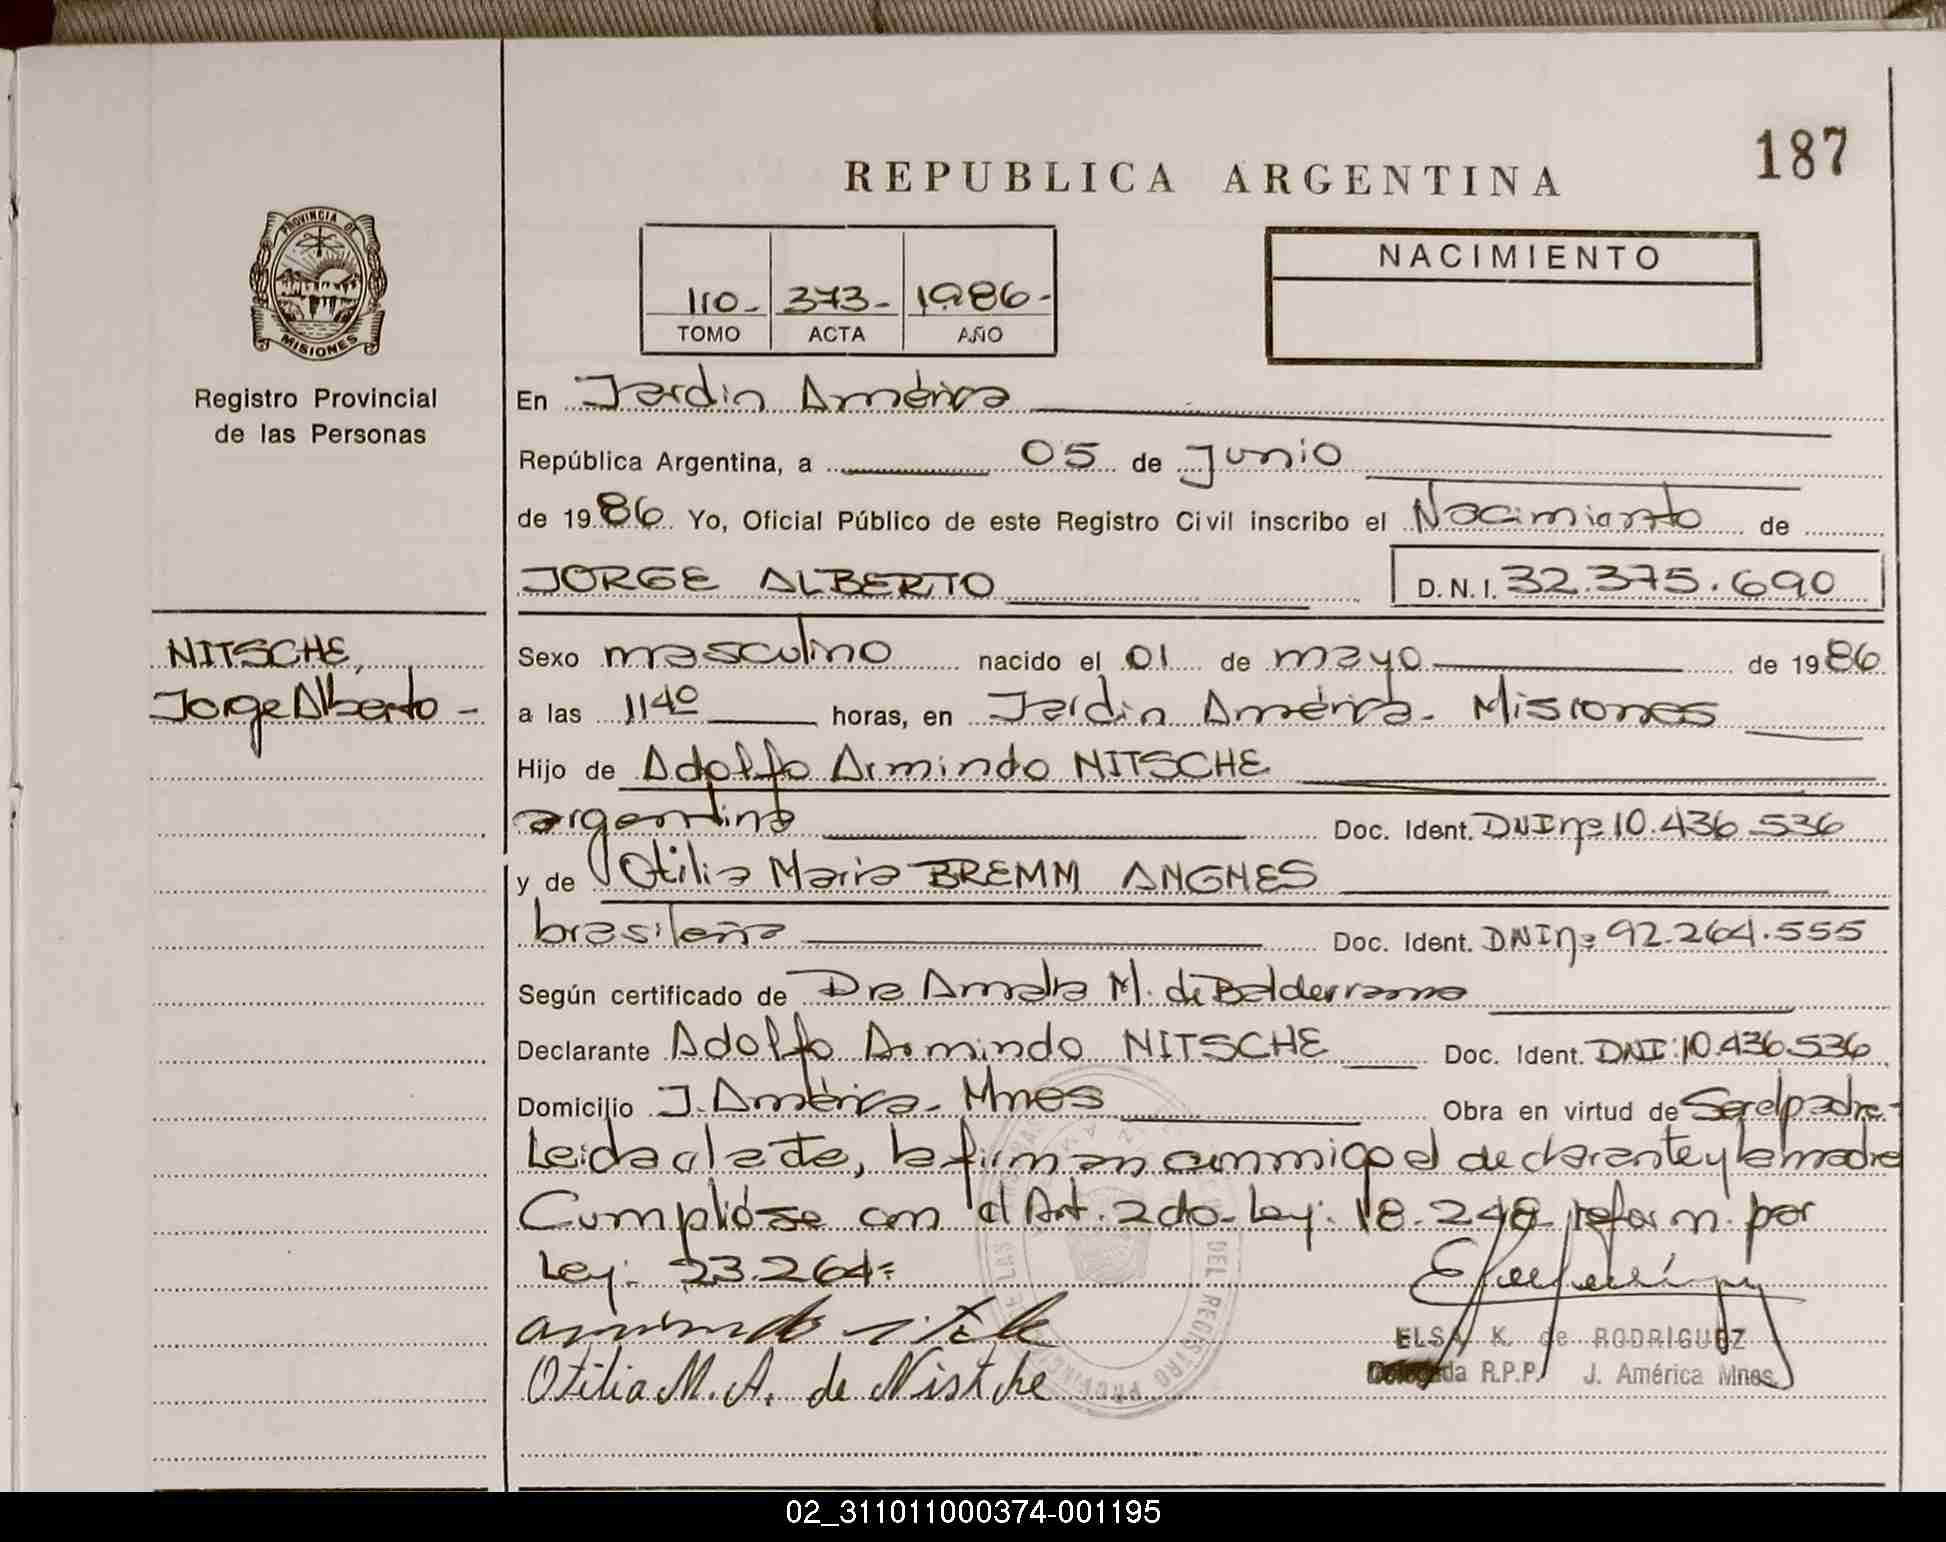 187
REPUBLICA ARGENTINA
PROVINCIA DE
MISIONES
Registro Provincial
de las Personas
110- 373- 1986-
TOMO ACTA AÑO
NACIMIENTO
En Jardin América
República Argentina, a 05 de Junio
de 1986 Yo, Oficial Público de este Registro Civil inscribo el Nacimiento de
JORGE ALBERTO D.N.I. 32.375.690
NITSCHE,
Jorge Alberto -
Sexo masculino nacido el 01 de mayo de 1986
a las 1140 horas, en Jardin América - Misiones
Hijo de Adolfo Armindo NITSCHE
argentino Doc. Ident. DNI nº 10.436.536
y de Otilia Maria BREMM ANGNES
brasileña Doc. Ident. DNI nº 92.264.555
Según certificado de Dra Amalia M. de Balderrama
Declarante Adolfo Armindo NITSCHE Doc. Ident. DNI: 10.436.536
Domicilio J. América - Mnes Obra en virtud de Ser el padre -
Leida el acta, la firman conmigo el declarante y la madre
Cumplióse con el Art. 2do - Ley: 18.248 reform. por
Ley: 23.264 =
Otilia M. A. de Nistche
ELSA K. de RODRIGUEZ
Delegada R.P.P. J. América Mnes.
DEL REGISTRO
02_311011000374-001195